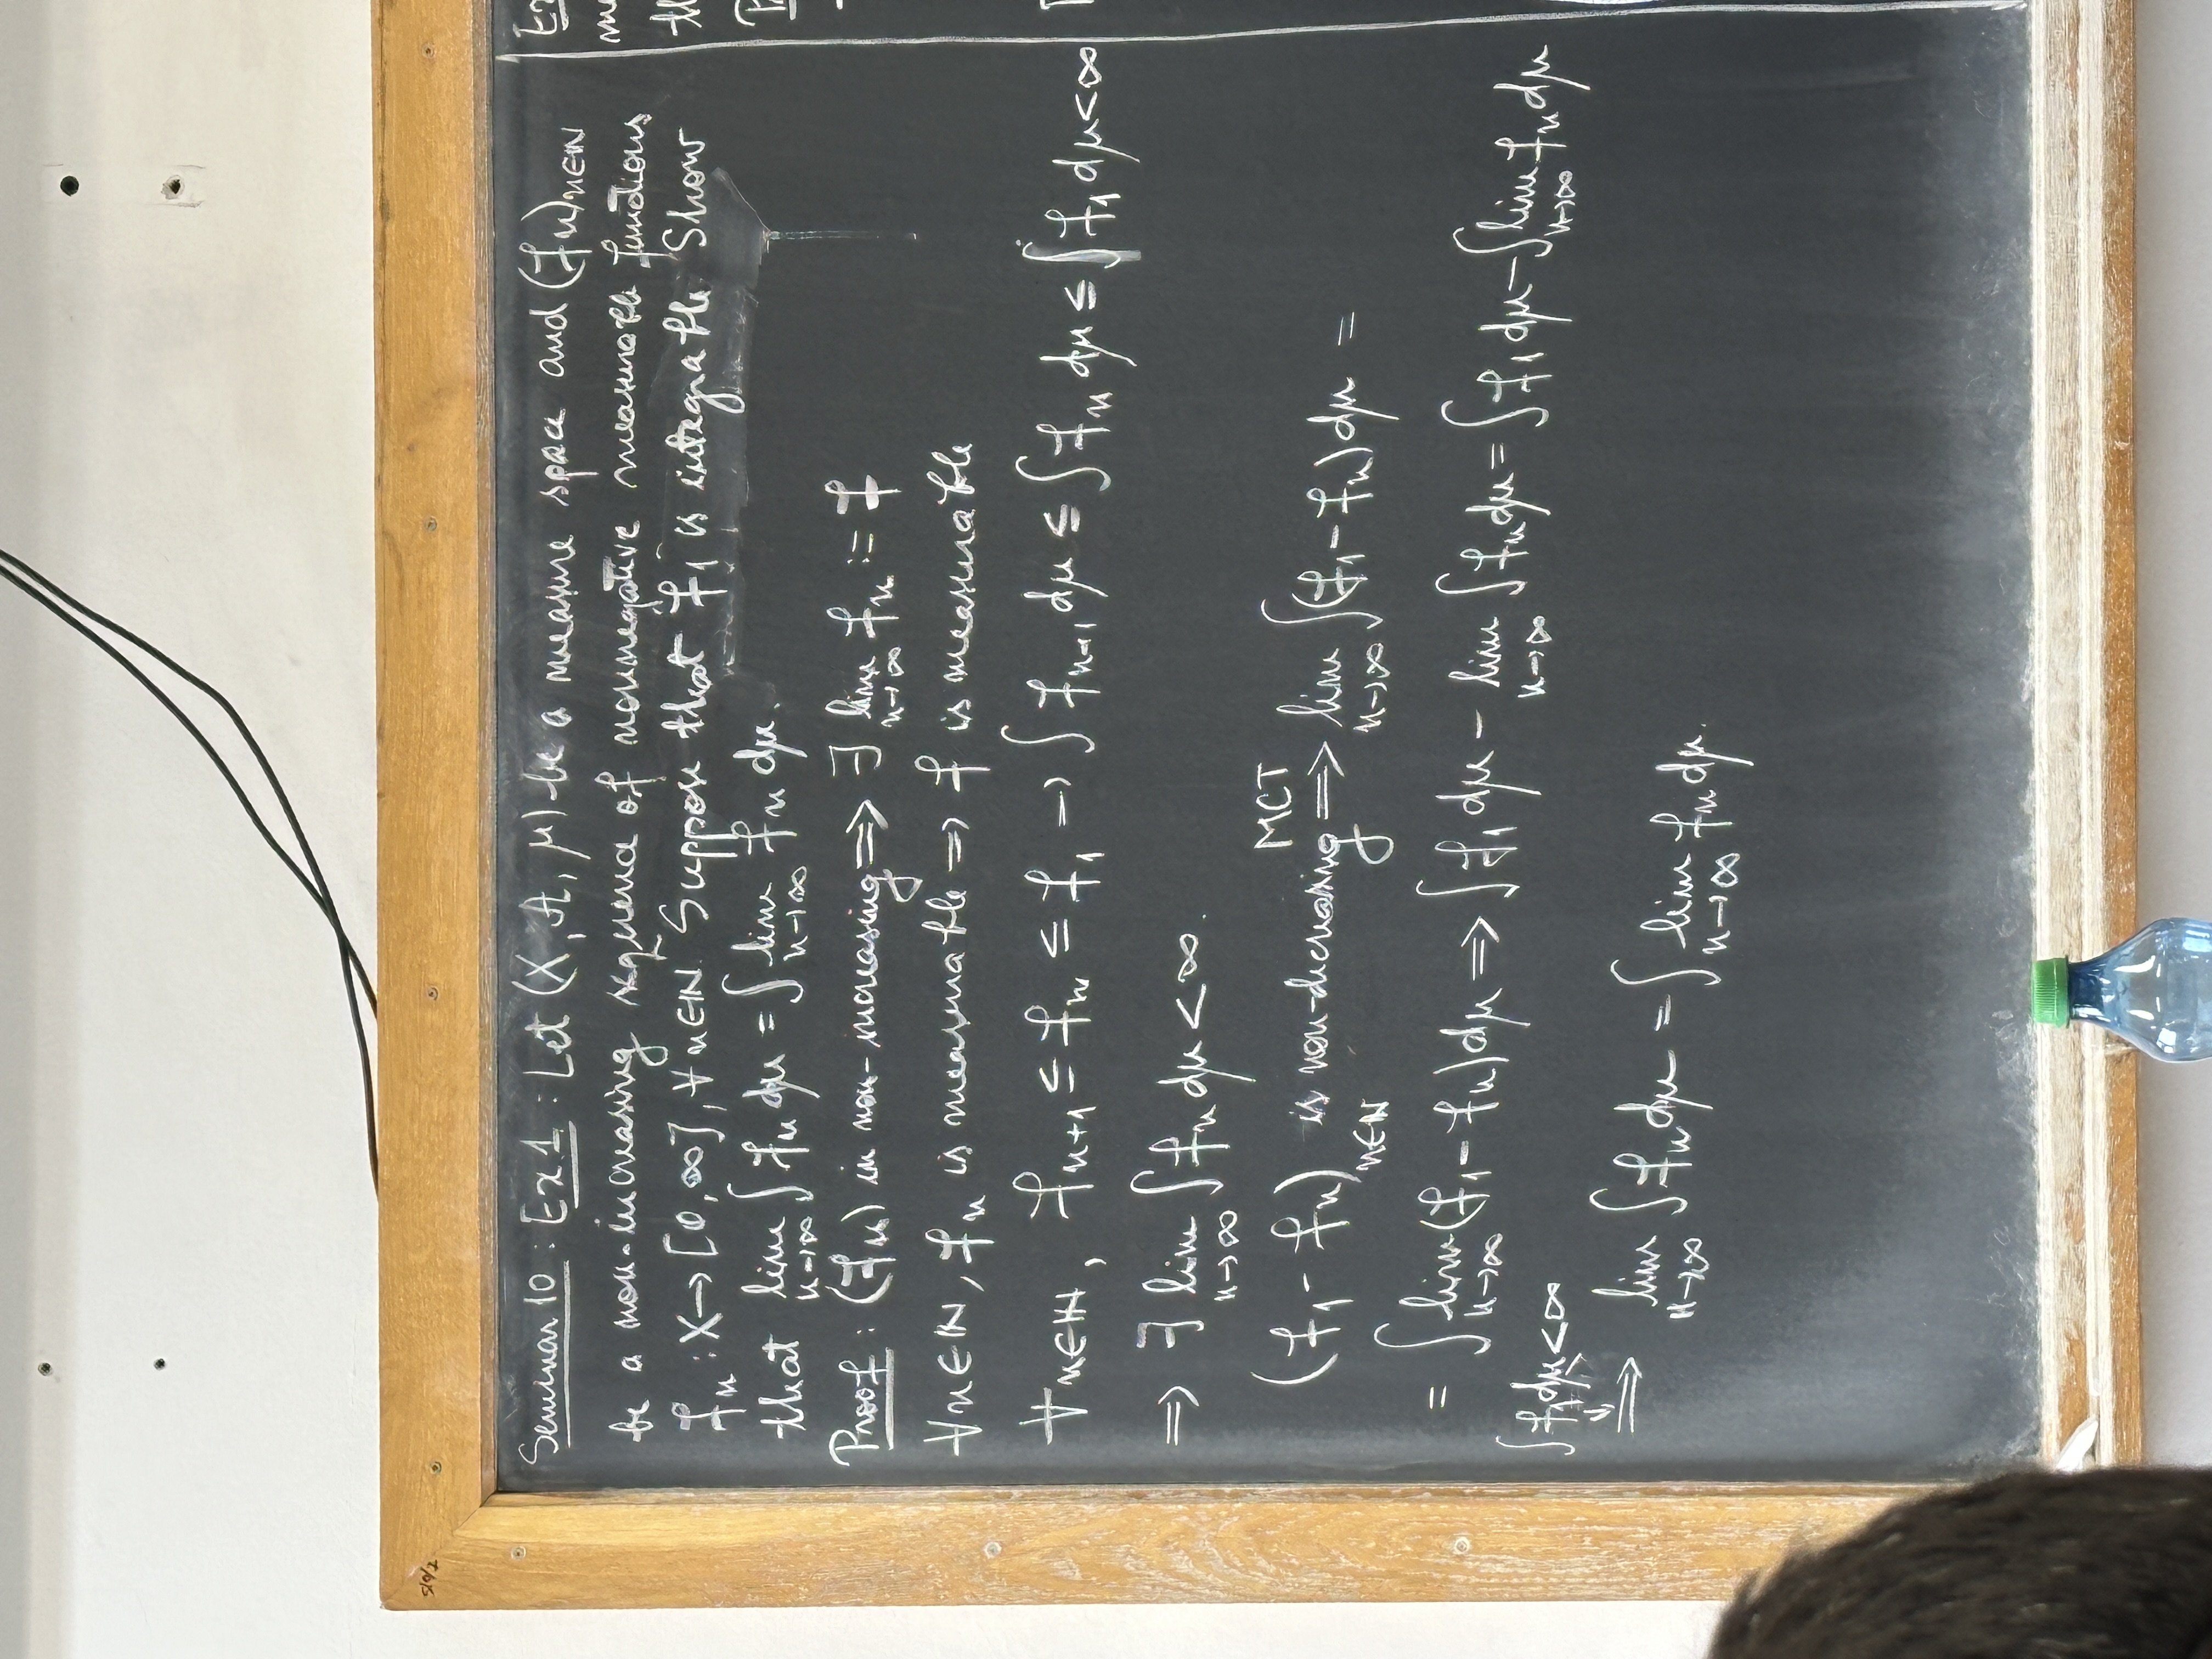 510/2
Seminar 10 : Ex 1 : Let (X, A, μ) be a measure space and (fn)n∈ℕ
be a non-increasing sequence of nonnegative measurable functions
fn : X → [0, ∞], ∀ n∈ℕ. Suppose that f1 is integrable Show
that lim n→∞ ∫ fn dμ = ∫ lim n→∞ fn dμ.
Proof : (fn) in non-increasing ⇒ ∃ lim n→∞ fn := f
∀n∈ℕ, fn is measurable ⇒ f is measurable
∀n∈ℕ, fn+1 ≤ fn ≤ f1 ⇒ ∫ fn+1 dμ ≤ ∫ fn dμ ≤ ∫ f1 dμ < ∞
⇒ ∃ lim n→∞ ∫ fn dμ < ∞.
(f1 - fn)n∈ℕ is non-decreasing MCT ⇒ lim n→∞ ∫(f1 - fn) dμ =
= ∫ lim n→∞ (f1 - fn) dμ ⇒ ∫ f1 dμ - lim n→∞ ∫ fn dμ = ∫ f1 dμ - ∫ lim n→∞ fn dμ
∫ f1 dμ < ∞
⇒ lim n→∞ ∫ fn dμ = ∫ lim n→∞ fn dμ.